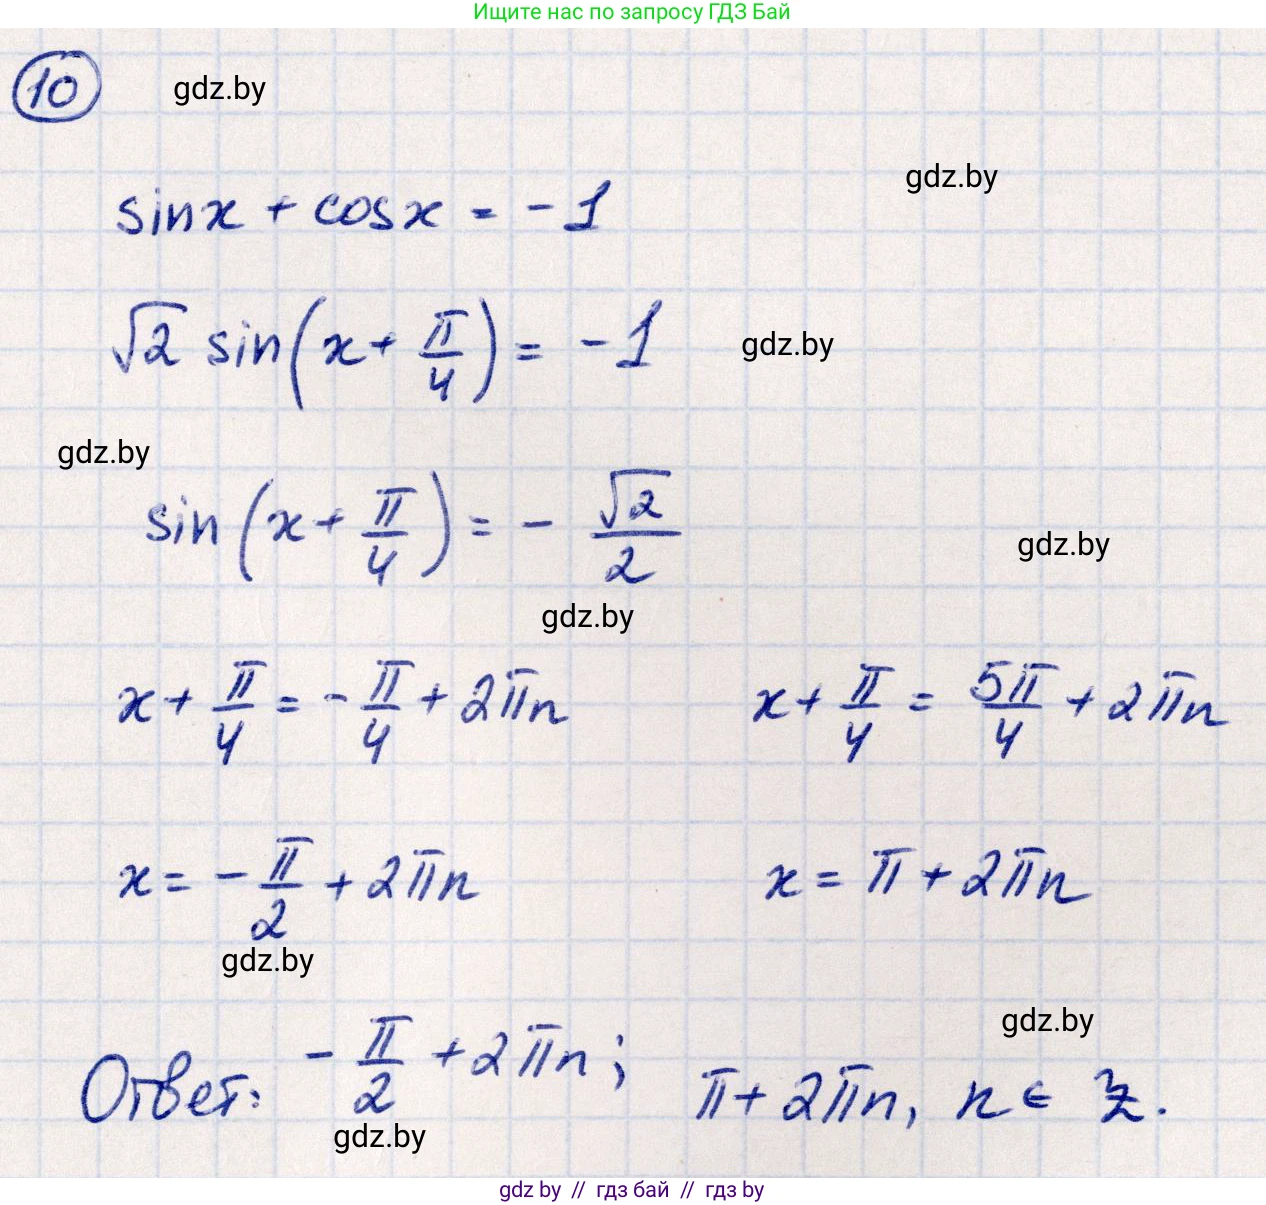 Ищите нас по запросу ГДЗ Бай
10 gdz.by
gdz.by
sinx + cosx = -1
√2 sin(x + π/4) = -1 gdz.by
gdz.by
sin(x + π/4) = - √2/2
gdz.by
gdz.by
x + π/4 = - π/4 + 2πn x + π/4 = 5π/4 + 2πn
x = - π/2 + 2πn x = π + 2πn
gdz.by
gdz.by
Ответ: - π/2 + 2πn; π + 2πn, n ∈ Z.
gdz.by
gdz by // гдз бай // гдз by